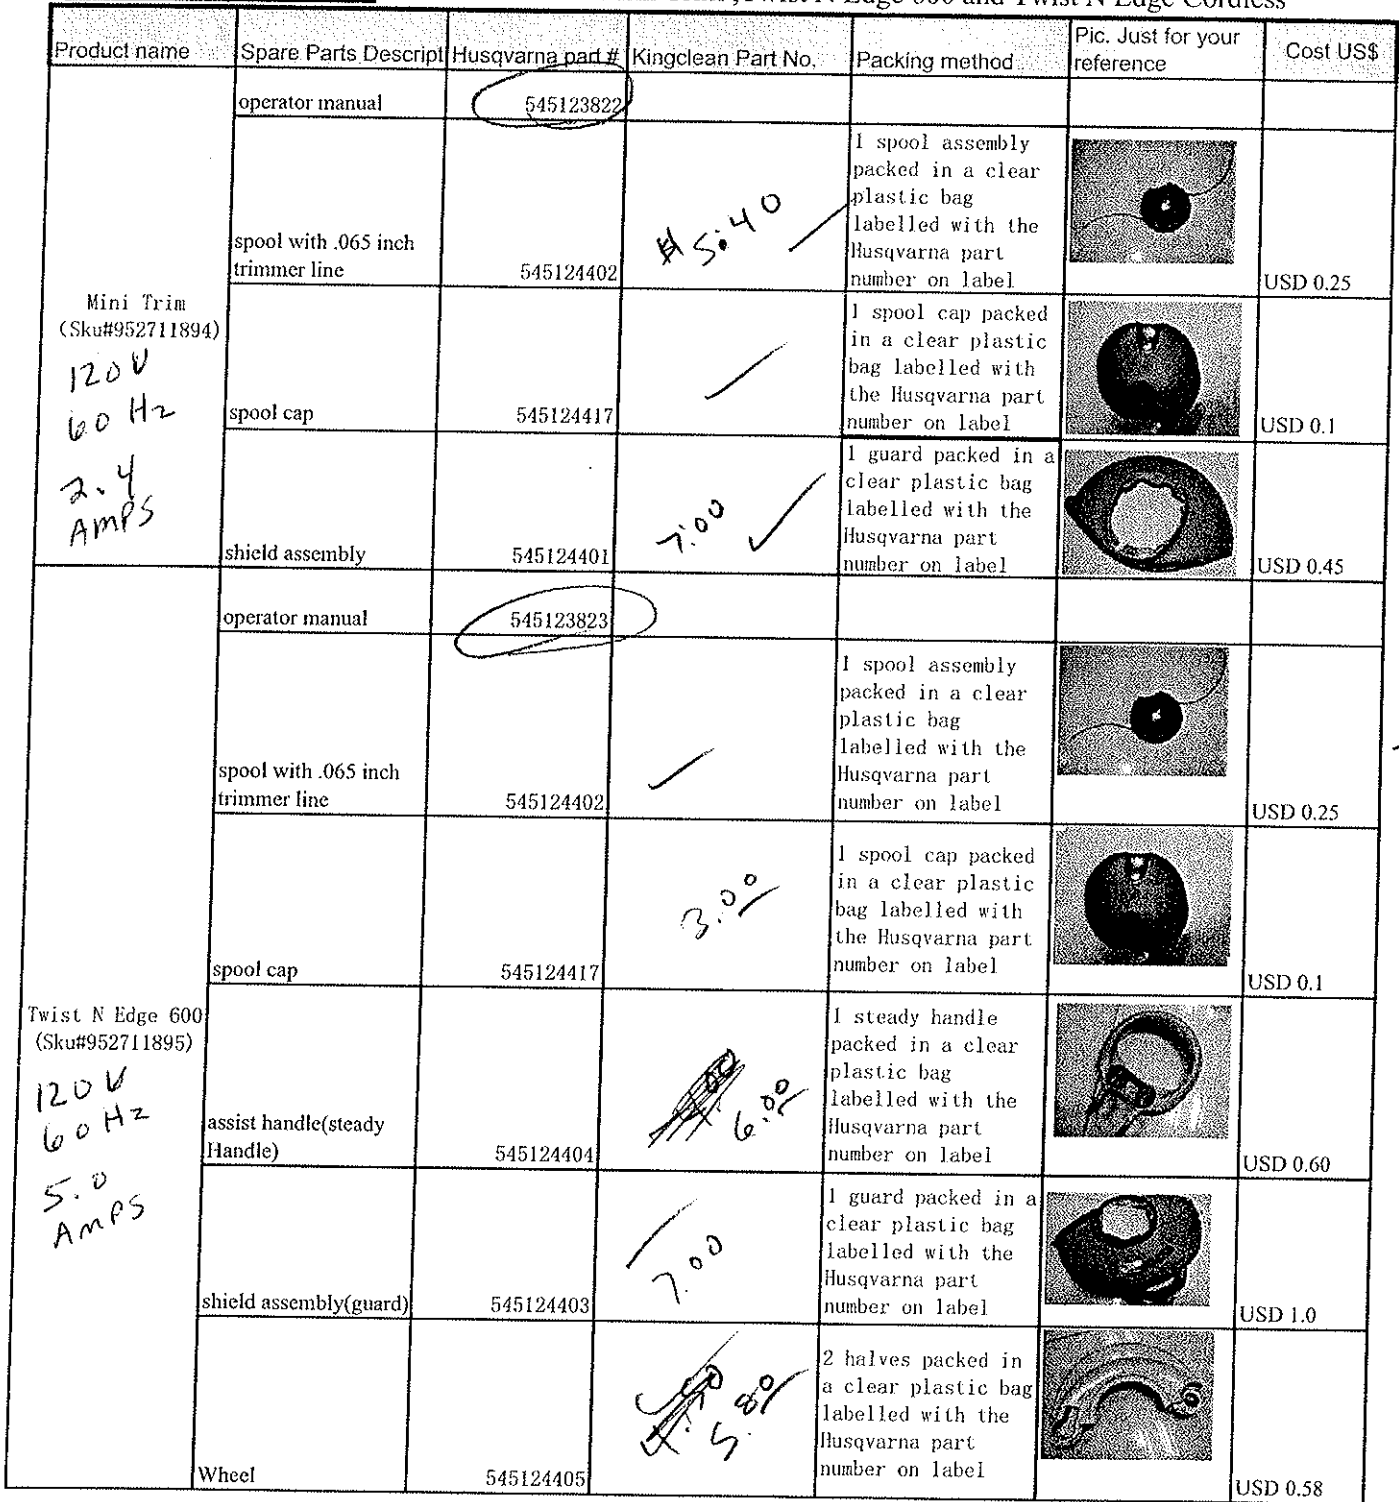 Twist N Edge 600 and Twist N Edge Cordless
Product name
Spare Parts Descript
Husqvarna part #
Kingclean Part No.
Packing method
Pic. Just for your
reference
Cost US$
operator manual
545123822
Mini Trim
(Sku#952711894)
120V
60 Hz
2.4
AMPS
spool with .065 inch
trimmer line
545124402
$5.40
1 spool assembly
packed in a clear
plastic bag
labelled with the
Husqvarna part
number on label
USD 0.25
spool cap
545124417
1 spool cap packed
in a clear plastic
bag labelled with
the Husqvarna part
number on label
USD 0.1
shield assembly
545124401
7.00
1 guard packed in a
clear plastic bag
labelled with the
Husqvarna part
number on label
USD 0.45
operator manual
545123823
Twist N Edge 600
(Sku#952711895)
120V
60 Hz
5.0
AMPS
spool with .065 inch
trimmer line
545124402
1 spool assembly
packed in a clear
plastic bag
labelled with the
Husqvarna part
number on label
USD 0.25
spool cap
545124417
3.00
1 spool cap packed
in a clear plastic
bag labelled with
the Husqvarna part
number on label
USD 0.1
assist handle(steady
Handle)
545124404
6.00
1 steady handle
packed in a clear
plastic bag
labelled with the
Husqvarna part
number on label
USD 0.60
shield assembly(guard)
545124403
7.00
1 guard packed in a
clear plastic bag
labelled with the
Husqvarna part
number on label
USD 1.0
Wheel
545124405
5.80
2 halves packed in
a clear plastic bag
labelled with the
Husqvarna part
number on label
USD 0.58